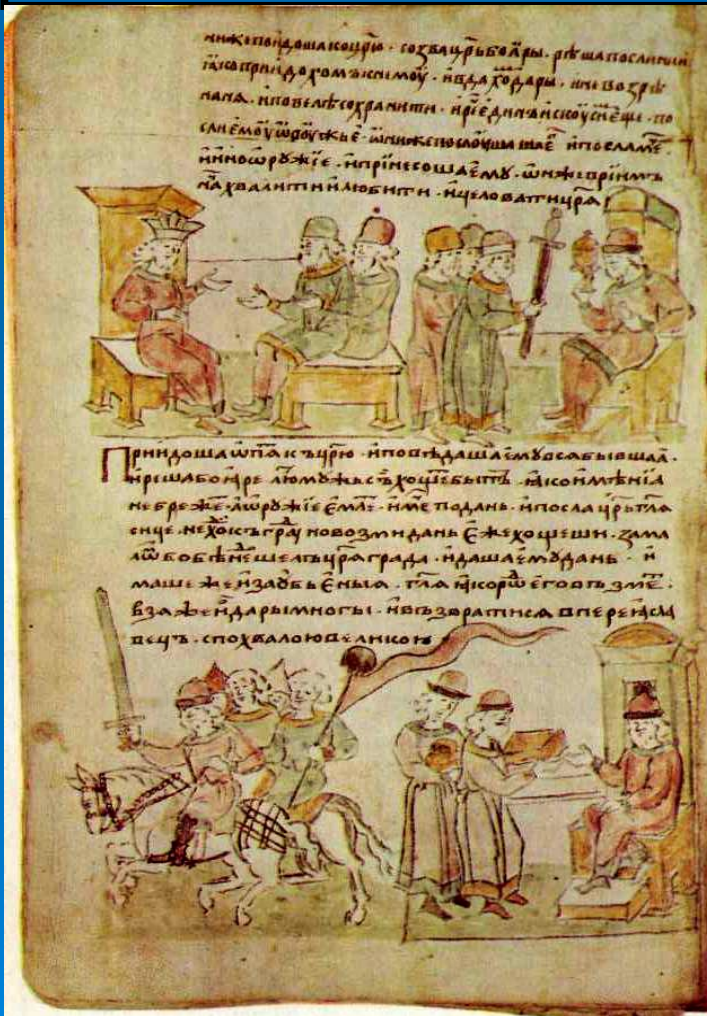 ѡниже поидоша ко цр҃ю · созва цр҃ь боѧры · рѣша послании
ꙗко приидохомъ к немоу · и вдахо̑ дары · и не возрѣ
на нѧ · и повелѣ сохранити · и рч҃е единъ искоуси еще · по
сли емоу ѡроужье · ѡни же послоушаша е̑ и посла
и ино ѡружїе · и принесоша ему · ѡн же приимъ
нача хвалити и любити и целовати цр҃ѧ
Приидоша ѡпѧ̑ къ цр҃ю · и повѣдаша емѹ всѧ бывшаꙗ ·
и реша боꙗре лю̑ мѹжь съ хоще̑ быть · ꙗко имѣнїа
небреже̑ · а ѡружїе емле̑ · имѣ подань · и посла цр҃ь гл҃ѧ
сице · не хо̑ къ гра̑ но возми дань еже хощеши · зама
ло бо бѣ не шелъ цр҃ѧграда · и даша емѹ дань · и
маше же и за ѹбьеныꙗ · гл҃ѧ ꙗко ро̑ его въ̑зме̑ ·
взѧ же и дары многы · и възвратисѧ в переꙗсла
вець · с похвалою великою